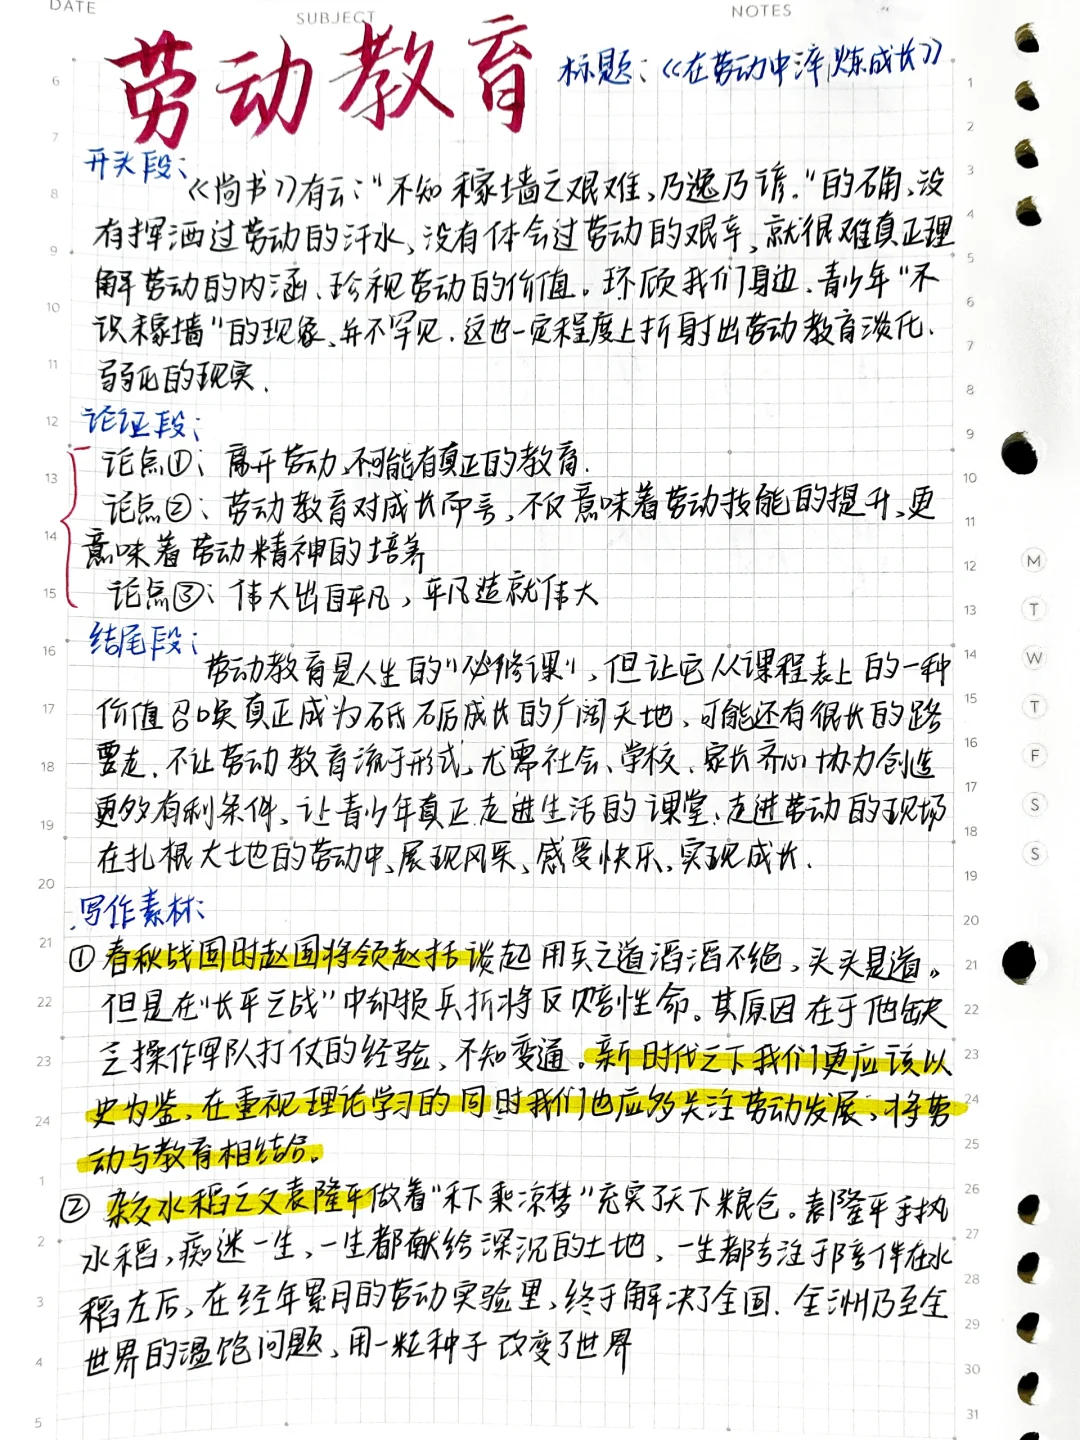 DATE
SUBJECT
NOTES
劳动教育
标题:《在劳动中淬炼成长》
开头段:
《尚书》有云:"不知稼墙之艰难、乃逸乃谚."的确,没
有挥洒过劳动的汗水,没有体会过劳动的艰辛,就很难真正理
解劳动的内涵、珍视劳动的价值。环顾我们身边,青少年"不
识稼墙"的现象,并不罕见.这也一定程度上折射出劳动教育淡化、
弱化的现实.
论证段:
论点①:离开劳动,不可能有真正的教育.
论点②:劳动教育对成长而言,不仅意味着劳动技能的提升,更
意味着劳动精神的培养
论点③:伟大出自平凡,平凡造就伟大
结尾段:
劳动教育是人生的"必修课",但让它从课程表上的一种
价值召唤真正成为砥砺成长的广阔天地,可能还有很长的路
要走.不让劳动教育流于形式,尤需社会、学校、家长齐心协力创造
更多有利条件,让青少年真正走进生活的课堂、走进劳动的现场
在扎根大土地的劳动中,展现风采,感受快乐,实现成长.
写作素材:
①春秋战国时赵国将领赵括谈起用兵之道滔滔不绝,头头是道。
但是在"长平之战"中却损兵折将反赔性命。其原因在于他缺
乏操作军队打仗的经验,不知变通。新时代之下我们更应该以
史为鉴,在重视理论学习的同时我们也应多关注劳动发展,将劳
动与教育相结合。
②杂交水稻之父袁隆平做着"禾下乘凉梦"充实了天下粮仓。袁隆平手执
水稻,痴迷一生,一生都献给深沉的土地,一生都专注于陪伴在水
稻左右,在经年累月的劳动实验里,终于解决了全国、全洲乃至全
世界的温饱问题,用一粒种子改变了世界
M
T
W
T
F
S
S